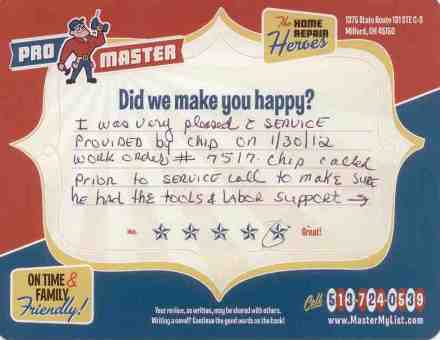 PRO MASTER
The HOME REPAIR Heroes
1376 State Route 131 STE C-3
Milford, OH 45150
Did we make you happy?
I was very pleased c̄ SERVICE
PROVIDED BY CHIP ON 1/30/12
WORK ORDER # 7517. CHIP called
PRIOR to SERVICE CALL to MAKE SURE
he had the tools & labor support →
No. Great!
ON TIME &
FAMILY
Friendly!
Your review, as written, may be shared with others.
Writing a novel? Continue the good words on the back!
Call 513-724-0539
www.MasterMyList.com